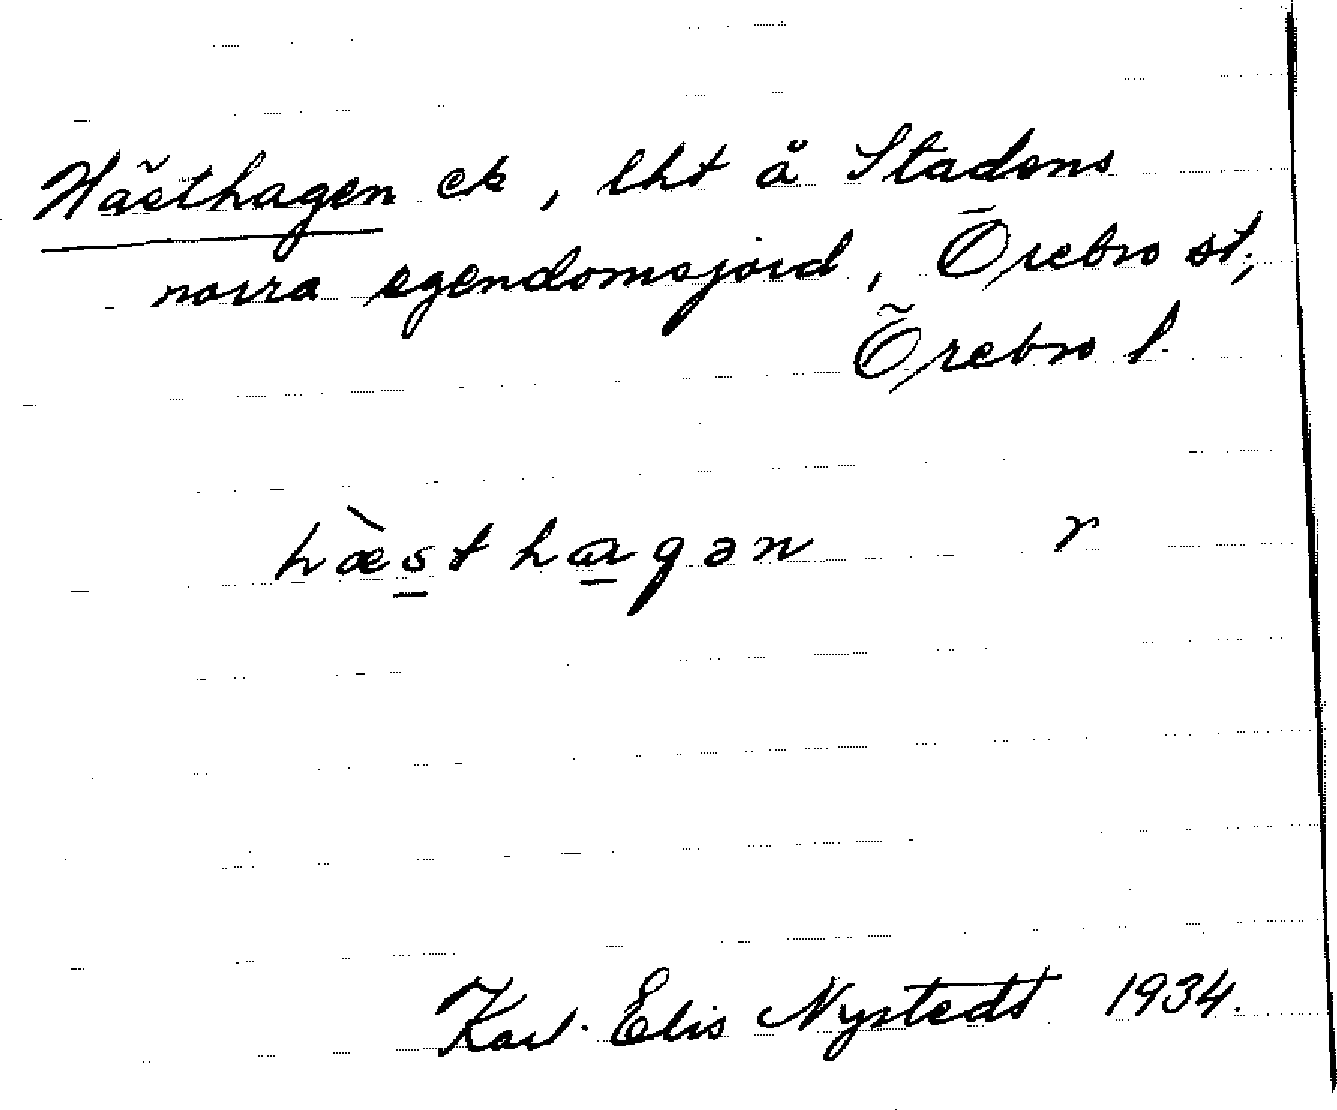 Hästhagen ek, lht å Stadens
norra egendomsjord, Örebro st,
Örebro l.
hæ̀st hagən r
Karl-Elis Nystedt 1934.